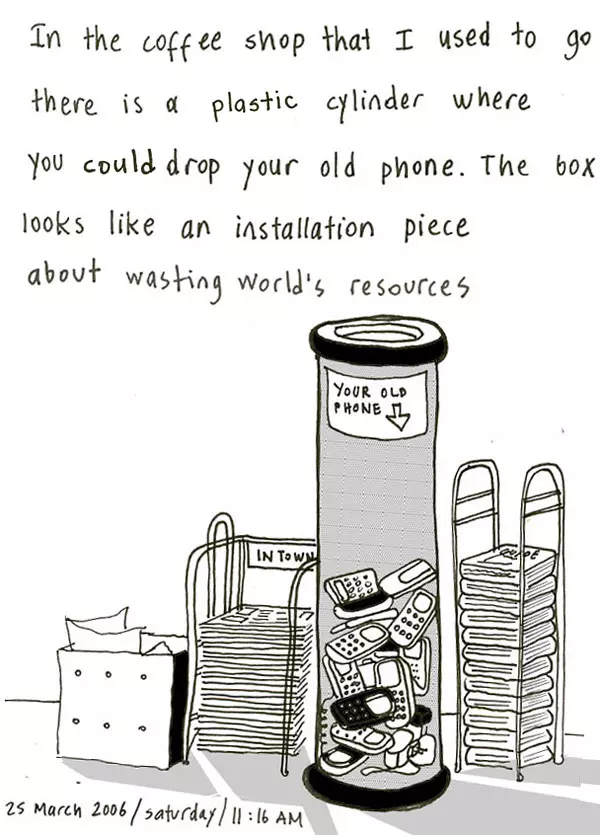 In the coffee shop that I used to go
there is a plastic cylinder where
you could drop your old phone. The box
looks like an installation piece
about wasting world's resources
YOUR OLD
PHONE
IN TOWN
GUIDE
25 March 2006/saturday/11:16 AM